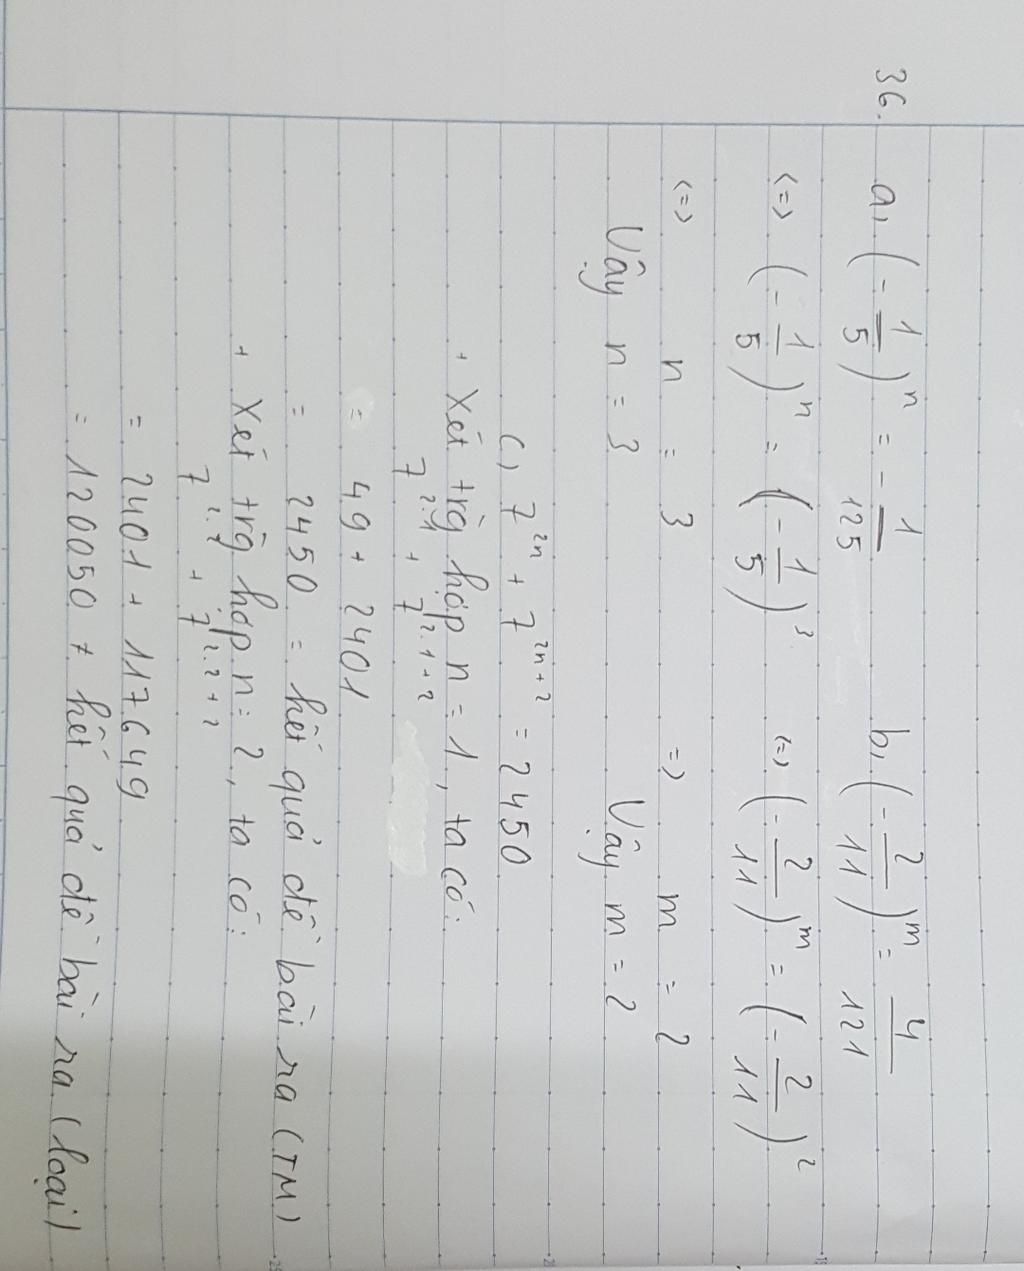 36. a, (-1/5)^n = -1/125
<=> (-1/5)^n = (-1/5)^3
<=> n = 3
Vậy n = 3
b, (-2/11)^m = 4/121
<=> (-2/11)^m = (-2/11)^2
=> m = 2
Vậy m = 2
c, 7^2n + 7^2n+2 = 2450
+ Xét trg hợp n = 1, ta có:
7^2.1 + 7^2.1+2
= 49 + 2401
= 2450 = kết quả đề bài ra (TM)
+ Xét trg hợp n = 2, ta có:
7^2.2 + 7^2.2+2
= 2401 + 117649
= 120050 ≠ kết quả đề bài ra (loại)